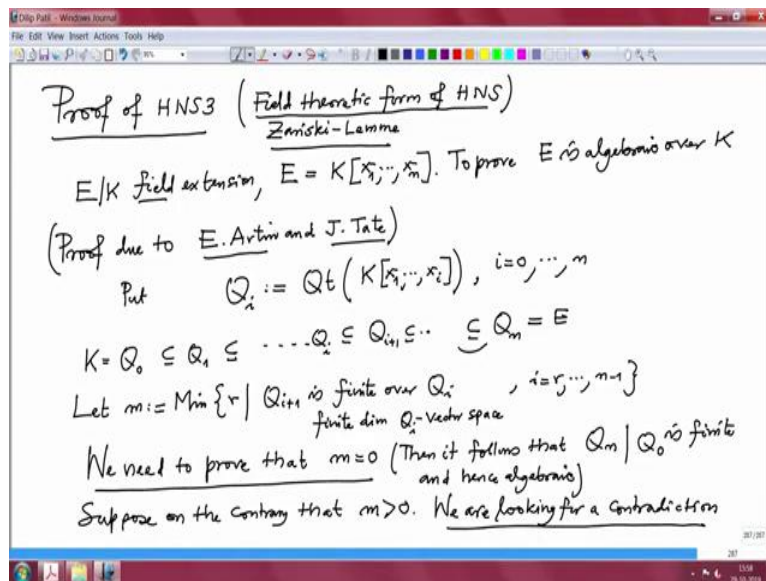 Dilip Patil - Windows Journal
File Edit View Insert Actions Tools Help
Proof of HNS3 (Field theoretic form of HNS)
Zariski-Lemma
E|K field extension, E = K[x₁,⋯,xₙ]. To prove E is algebraic over K
(Proof due to E. Artin and J. Tate)
Put Qᵢ := Qt(K[x₁,⋯,xᵢ]), i=0,⋯,n
K = Q₀ ⊆ Q₁ ⊆ ⋯⋯Qᵢ ⊆ Qᵢ₊₁ ⊆⋯ ⊆ Qₙ = E
Let m := Min {r | Qᵢ₊₁ is finite over Qᵢ , i=r,⋯,n-1}
finite dim Qᵢ-vector space
We need to prove that m=0 (Then it follows that Qₙ | Q₀ is finite
and hence algebraic)
Suppose on the contrary that m>0. We are looking for a contradiction
287/287
287
15:58